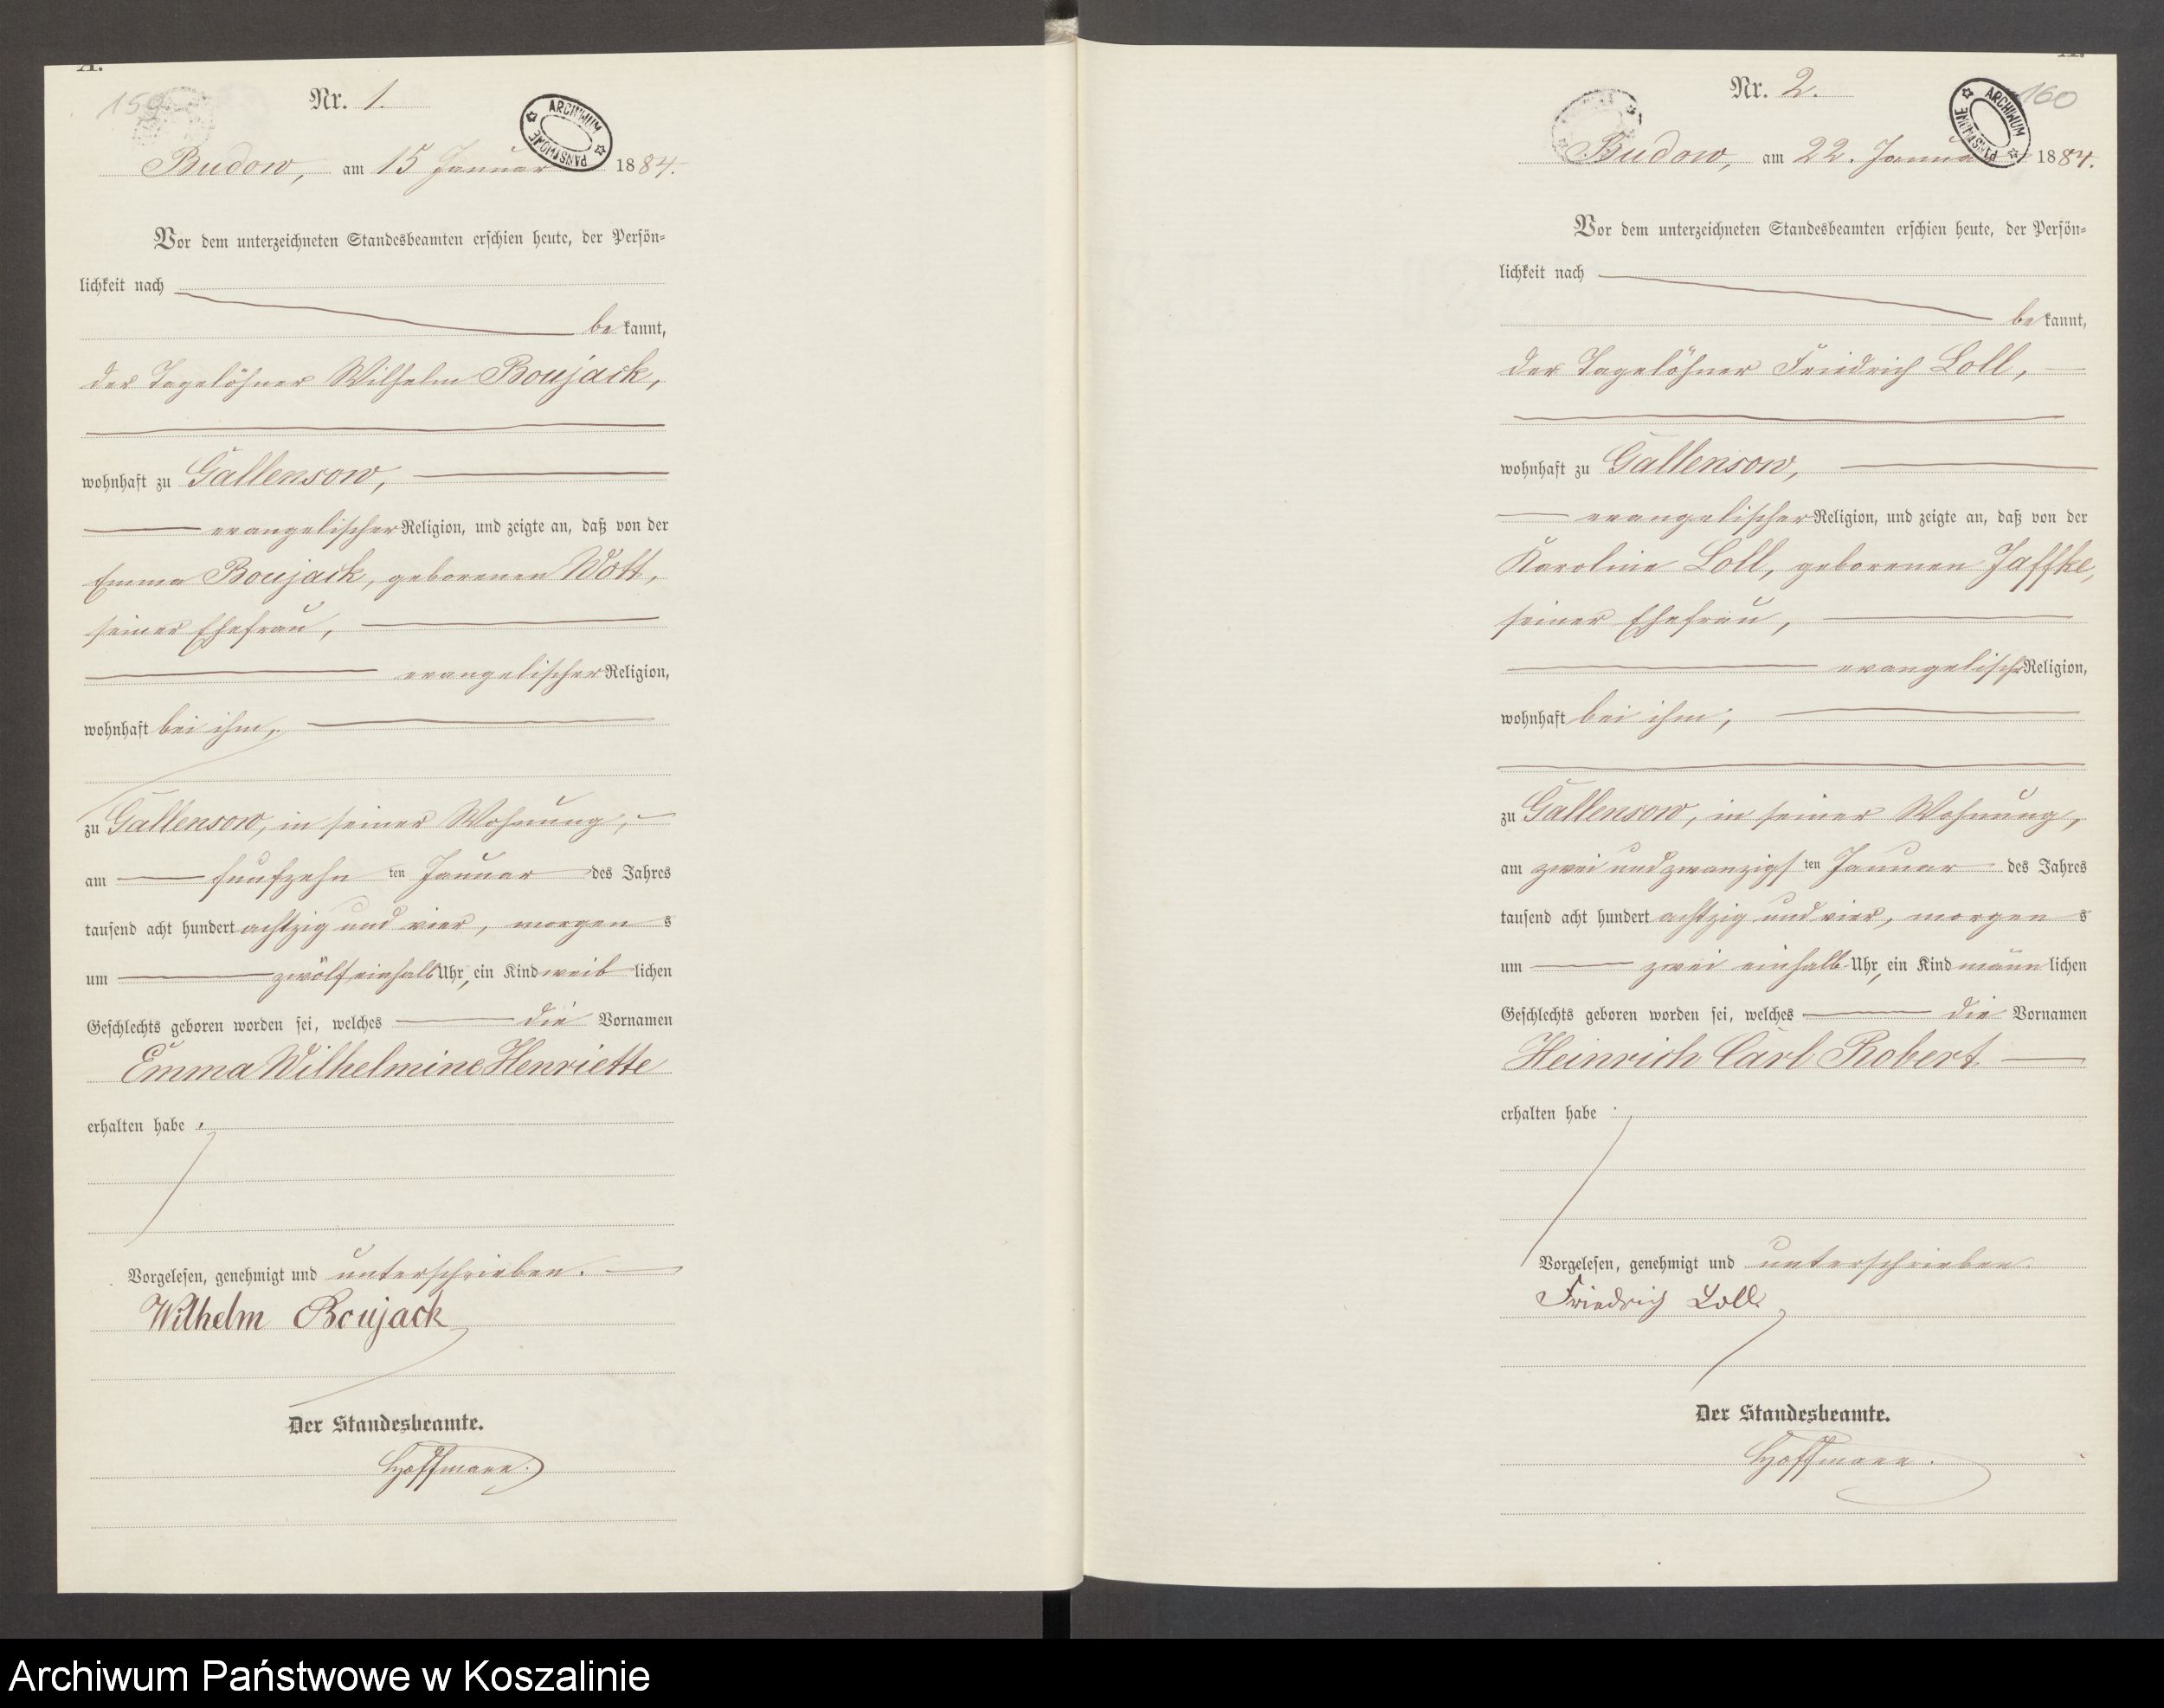 A.
159
Nr. 1.
ARCHIWUM PAŃSTWOWE
Budow, am 15 Januar 1884.
Vor dem unterzeichneten Standesbeamten erschien heute, der Persön-
lichkeit nach
bekannt,
der Tagelöhner Wilhelm Boujack,
wohnhaft zu Gallensow,
evangelischer Religion, und zeigte an, daß von der
Emma Boujack, geborenen Wott,
seiner Ehefrau,
evangelischer Religion,
wohnhaft bei ihm,
zu Gallensow, in seiner Wohnung,
am fünfzehn ten Januar des Jahres
tausend acht hundert achtzig und vier, morgens
um zwölf einhalb Uhr, ein Kind weiblichen
Geschlechts geboren worden sei, welches die Vornamen
Emma Wilhelmine Henriette
erhalten habe.
Vorgelesen, genehmigt und unterschrieben.
Wilhelm Boujack
Der Standesbeamte.
Hoffmann.
A.
160
Nr. 2.
ARCHIWUM PAŃSTWOWE
Budow, am 22. Januar 1884.
Vor dem unterzeichneten Standesbeamten erschien heute, der Persön-
lichkeit nach
bekannt,
der Tagelöhner Friedrich Loll,
wohnhaft zu Gallensow,
evangelischer Religion, und zeigte an, daß von der
Karoline Loll, geborenen Jaffke,
seiner Ehefrau,
evangelischer Religion,
wohnhaft bei ihm,
zu Gallensow, in seiner Wohnung,
am zwei und zwanzigsten Januar des Jahres
tausend acht hundert achtzig und vier, morgens
um zwei einhalb Uhr, ein Kind männlichen
Geschlechts geboren worden sei, welches die Vornamen
Heinrich Carl Robert
erhalten habe.
Vorgelesen, genehmigt und unterschrieben.
Friedrich Loll
Der Standesbeamte.
Hoffmann.
Archiwum Państwowe w Koszalinie